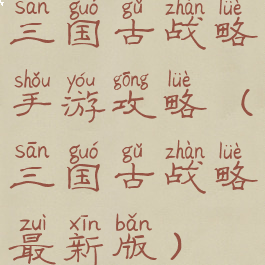 sān guó gǔ zhàn lüè
三国古战略
shǒu yóu gōng lüè
手游攻略（
sān guó gǔ zhàn lüè
三国古战略
zuì xīn bǎn
最新版）